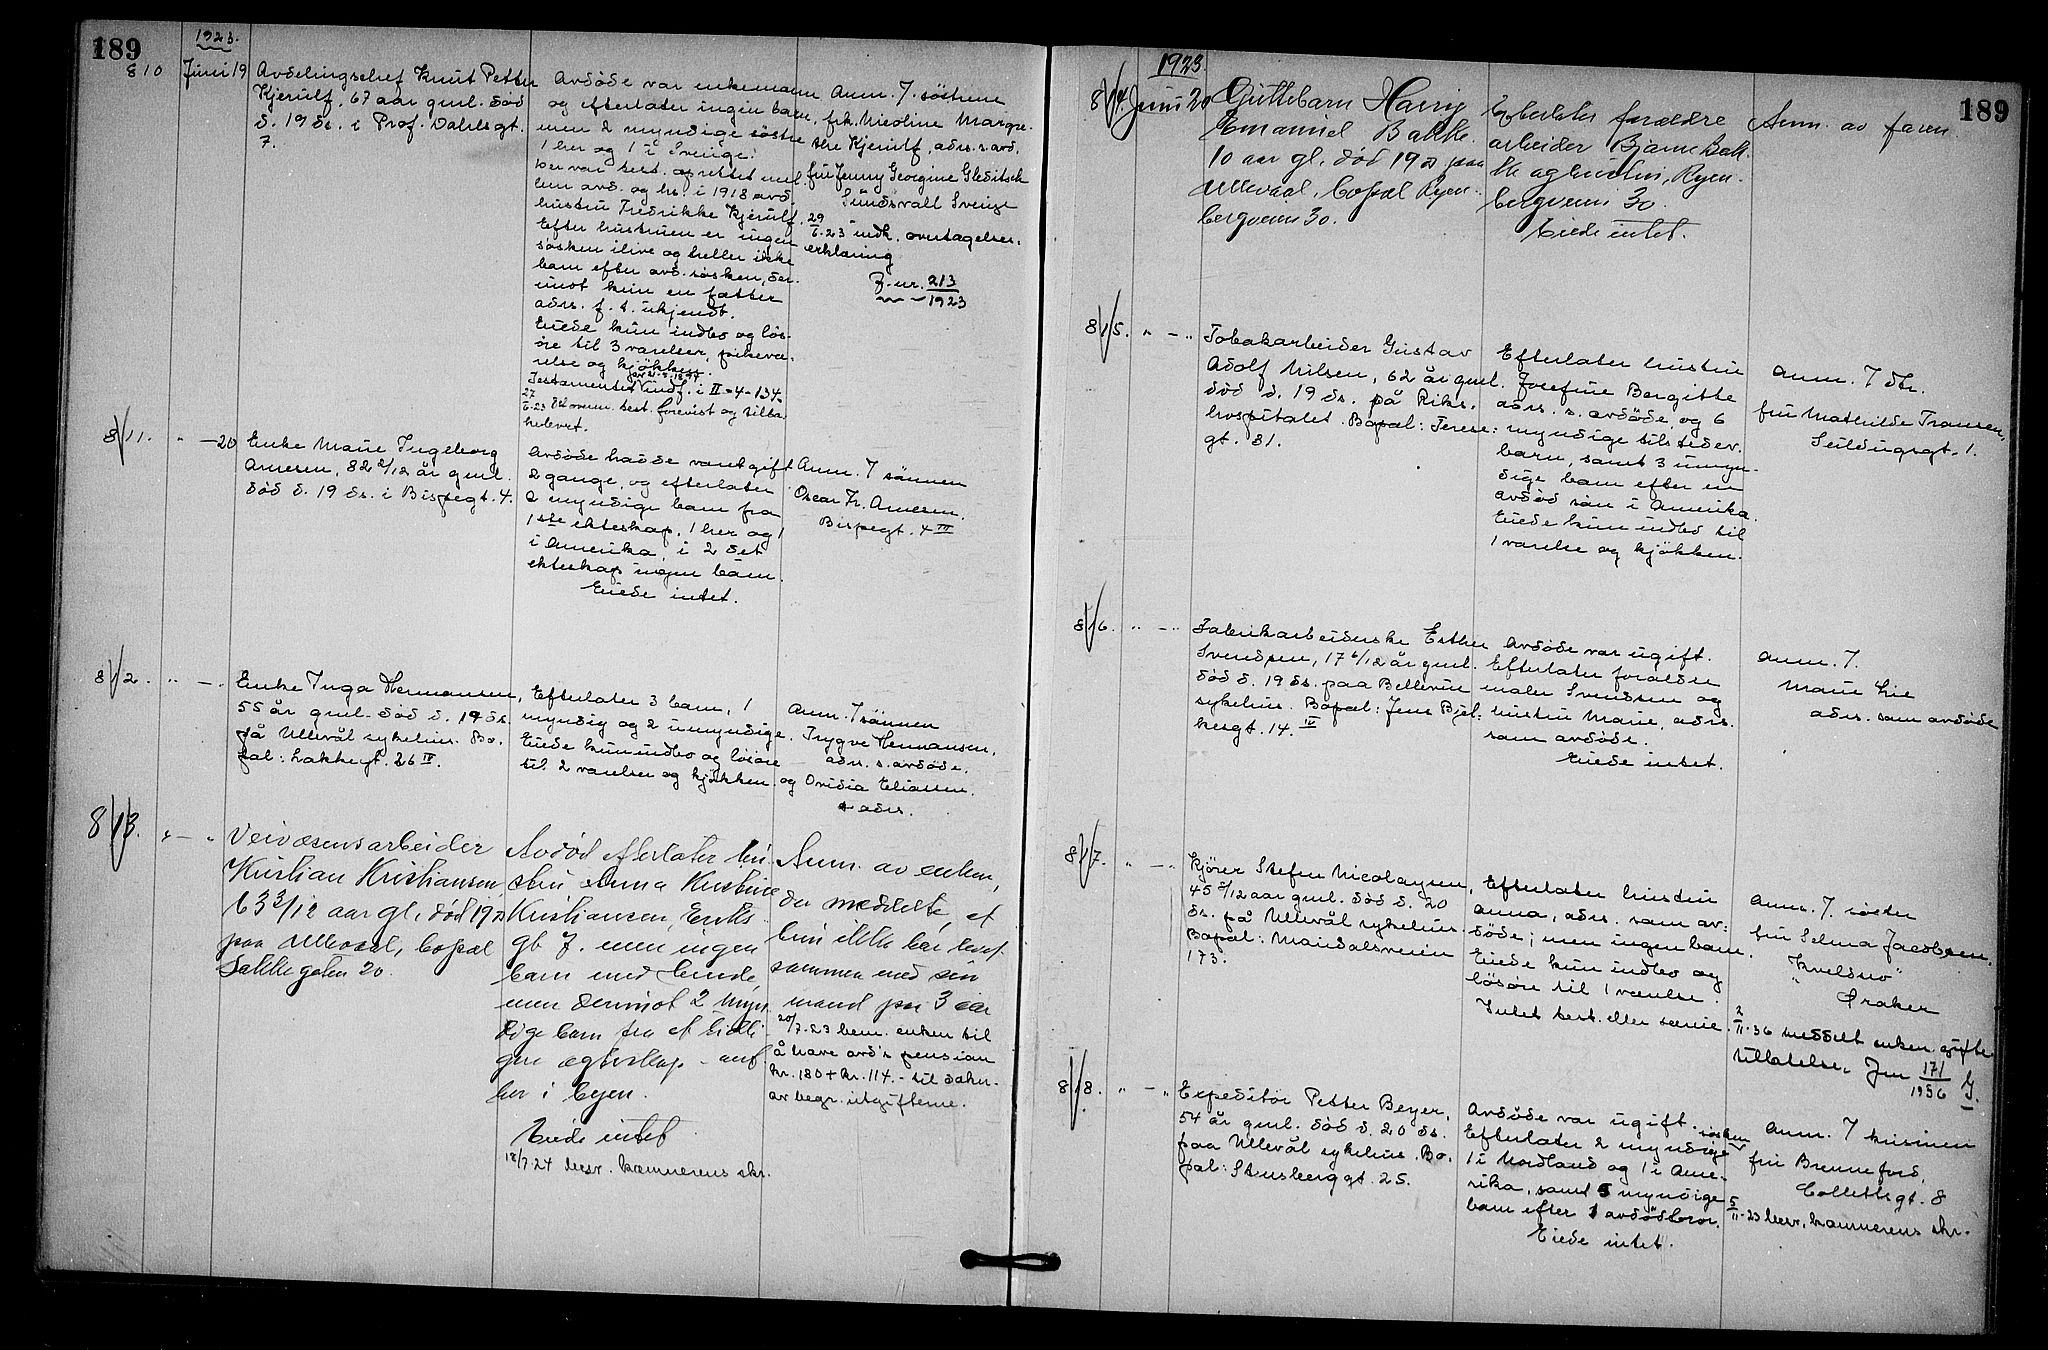 189
1923.
810
Juni 19
Avdelingschef Knut Petter
Kjerulf, 67 aar gml. død
d. 19 ds. i Prof. Dahls gt.
7.
Avdøde var enkemann
og efterlater ingen barn,
men 2 myndige søstre
1 her og 1 i Sverige.
Der var test. oprettet mel.
lem avd. og hs. i 1918 avd.
hustru Fredrikke Kjerulf.
Efter hustruen er ingen
søsken ilive og heller ikke
barn efter avd. søsken, der-
imot kun en fætter
adrs. f. t. ukjendt.
Eiede kun indbo og løs-
øre til 3 værelser, pikevæ-
relse og kjøkken.
Testamentet indf. i II-4-134.
27/6-23 Ed overn. test. forevist og tilba-
kelevert.
Anm. 7. søstrene
frk. Nicoline Margre-
the Kjerulf, adrs. s. avd.
fru Jenny Georgine Gleditsch
Sundsvall Sverige
29/6.23 indk. overtagelses-
erklæring
J. nr. 213/1923
811.
" — 20
Enke Marie Ingeborg
Arnesen, 82 2/12 år gml.
død d. 19 ds. i Bispegt. 4.
Avdøde hadde vært gift
2 gange, og efterlater
2 myndige barn fra
1ste ekteskap, 1 her og 1
i Amerika, i 2det
ekteskap ingen barn.
Eiede intet.
Anm. 7 sønnen
Oscar Fr. Arnesen.
Bispegt. 4 III
812.
" — "
Enke Inga Hermansen,
55 år gml. død d. 19 ds.
på Ullevål sykehus. Bo-
pæl: Lakkegt. 26 IV.
Efterlater 3 barn, 1
myndig og 2 umyndige.
Eiede kun indbo og løsøre
til 2 værelser og kjøkken.
Anm. 7 sønnen
Trygve Hermansen,
adrs. s. avdøde.
og Ovidia Eliassen.
s adrs.
813.
" — "
Veivæsensarbeider
Kristian Kristiansen,
63 3/12 aar gl., død 19 ds
paa Ullevaal, bopæl
Lakkegaten 20.
Avdød efterlater hu-
stru Anna Kristine
Kristiansen, Enks
gt 7. men ingen
barn med hende,
men derimot 2 myn
dige barn fra et tidli
gere ægteskap - anf.
her i byen.
Eiede intet
18/7.24 besv. kæmnerens skr.
Anm. av enken,
der meddelte, at
hun ikke har levet
sammen med sin
mand paa 3 aar
20/7.23 bem. enken til
å have avd's pension
kr. 180 + kr. 114.- til dækn.
av begr. utgifterne.
1923
189
814.
Juni 20
Guttebarn Harry
Emanuel Bakke
10 aar gl., død 19 ds paa
Ullevaal, bopæl Ryen-
bergveien 30.
Efterlater forældre
arbeider Bjarne Bak-
ke og hustru, Ryen-
bergveien 30.
Eiede intet.
Anm. av faren
815.
" — "
Tobakarbeider Gustav
Adolf Nilsen, 62 år gml.
død d. 19 ds. på Riks-
hospitalet. Bopæl: Terese-
gt. 31.
Efterlater hustru
Josefine Bergitte
adrs. s. avdøde, og 6
myndige tilstedev.
barn, samt 3 umyn-
dige barn efter en
avdød søn i Amerika.
Eiede kun indbo til
1 værelse og kjøkken.
Anm. 7 dtr.
fru Mathilde Transen,
Seildugsgt. 1.
816.
" — "
Fabrikarbeiderske Esther
Svendsen, 17 6/12 år gml.
død d. 19 ds. paa Bellevue
sykehus. Bopæl: Jens Bjel-
kesgt. 14. IV
Avdøde var ugift.
Efterlater forældre
maler Svendsen og
hustru Marie, adrs.
som avdøde.
Eiede intet.
Anm. 7.
Marie Lie
adrs. som avdøde
817.
" — "
Kjører Stefen Nicolaysen,
45 2/12 aar gml. død d. 20
ds. på Ullevål sykehus.
Bopæl: Maridalsveien
173.
Efterlater hustru
Anna, adrs. som av-
døde; men ingen barn.
Eiede kun indbo og
løsøre til 1 værelse.
Intet test. eller særeie.
Anm. 7. søster
fru Selma Jacobsen,
"Kveldsro"
Øraker
2/11-36 meddelt enken gifte
tillatelse. Jnr 171/1936 G.
818.
" — "
Expeditør Petter Beyer,
54 år gml. død d. 20 ds.
paa Ullevål sykehus. Bo-
pæl: Stensberggt. 25.
Avdøde var ugift.
Efterlater 2 myndige søsken
1 i Nordland og 1 i Ame-
rika, samt 5 myndige
barn efter 1 avdød bror.
Eiede intet.
Anm. 7 kusinen
fru Brenneford,
Colletts gt. 8
5/11-23 besv. kæmnerens skr.